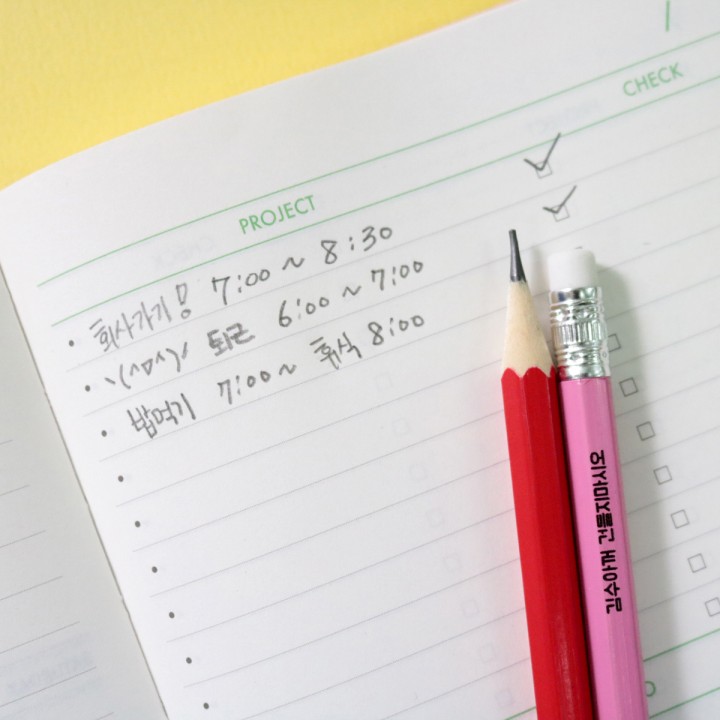 PROJECT CHECK
회사가기! 7:00 ~ 8:30
\(^ㅁ^)/ 퇴근 6:00 ~ 7:00
밥먹기 7:00 ~ 휴식 8:00
김수아꺼 건들지마시오